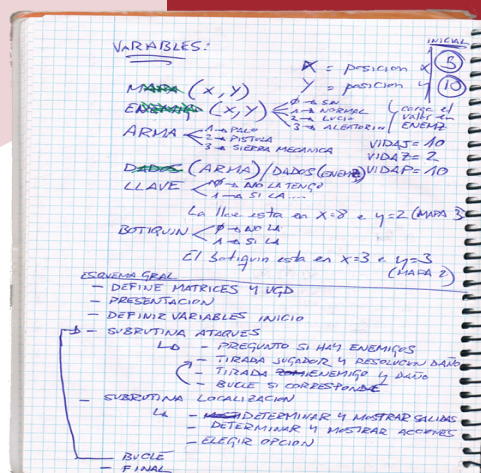 VARIABLES:
INICIAL
X = posicion x 5
Y = posicion y 10
MAPA (X, Y)
ENEMIGO (X, Y) 0 → SIN
1 → NORMAL
2 → LUCIO
3 → ALEATORIO
carga el
valor en
ENEMZ
ARMA 1 → PALO
2 → PISTOLA
3 → SIERRA MECANICA
VIDAJ = 10
VIDAZ = 2
DADOS (ARMA) / DADOS (ENEMZ) VIDAP = 10
LLAVE 0 → NO LA TENGO
1 → SI LA ....
La llave esta en x=8 e y=2 (MAPA 3)
BOTIQUIN 0 → NO LA
1 → SI LA
El botiquin esta en x=3 e y=3
(MAPA 2)
ESQUEMA GRAL
- DEFINE MATRICES Y UGD
- PRESENTACION
- DEFINIR VARIABLES INICIO
- SUBRUTINA ATAQUES
- PREGUNTO SI HAY ENEMIGOS
- TIRADA JUGADOR Y RESOLUCION DAÑO
- TIRADA ENEMIGO Y DAÑO
- BUCLE SI CORRESPONDE
- SUBRUTINA LOCALIZACION
- DETERMINAR Y MOSTRAR SALIDAS
- DETERMINAR Y MOSTRAR ACCIONES
- ELEGIR OPCION
- BUCLE
- FINAL